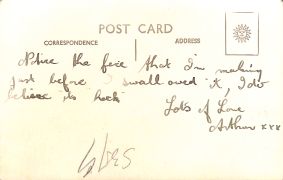 POST CARD
CORRESPONDENCE ADDRESS
Notice the face that I'm making
just before I swallowed it, I do
believe its
Lots of Love
Arthur xxx